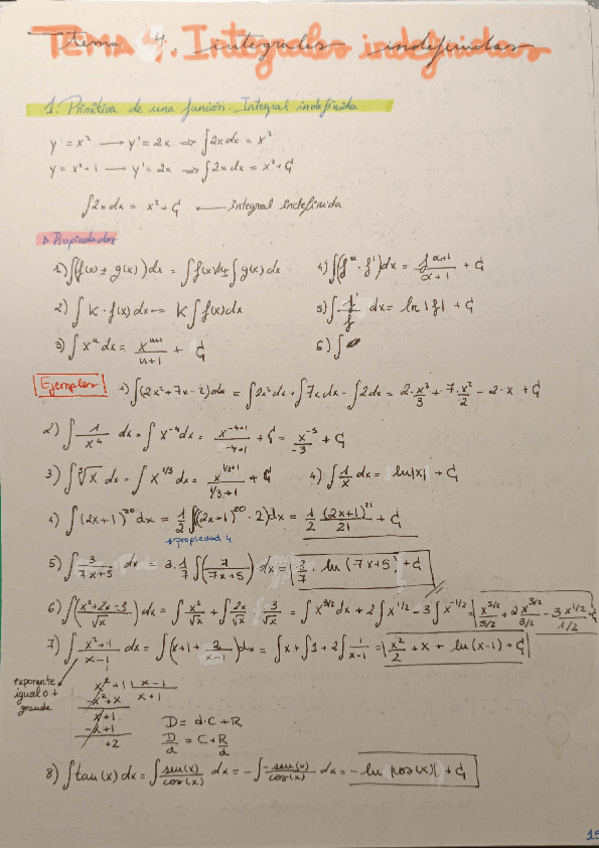 TEMA 4. Integrales indefinidas
tema 4. integrales indefinidas
1. Primitiva de una función. Integral indefinida
y = x² → y' = 2x ⇒ ∫2x dx = x²
y = x² + 1 → y' = 2x ⇒ ∫2x dx = x² + C
∫2x dx = x² + C ← integral indefinida
▷ Propiedades
1) ∫(f(x) ± g(x)) dx = ∫f(x)dx ± ∫g(x) dx
4) ∫(f^α · f') dx = f^(α+1)/(α+1) + C
2) ∫ K · f(x) dx = K ∫ f(x) dx
5) ∫ f'/f dx = ln |f| + C
3) ∫ x^n dx = x^(n+1)/(n+1) + C
6) ∫
Ejemplos
1) ∫(2x² + 7x - 2) dx = ∫2x² dx + ∫7x dx - ∫2 dx = 2·x³/3 + 7·x²/2 - 2·x + C
2) ∫ 1/x⁴ dx = ∫ x^-4 dx = x^(-4+1)/(-4+1) + C = x^-3/-3 + C
3) ∫ ³√x dx = ∫ x^(1/3) dx = x^(1/3+1)/(1/3+1) + C
4) ∫ 1/x dx = ln|x| + C
4) ∫ (2x+1)^20 dx = 1/2 ∫((2x+1)^20 · 2) dx = 1/2 (2x+1)^21/21 + C
propiedad 4
5) ∫ 3/(7x+5) dx = 3·1/7 ∫(7/(7x+5)) dx = 3/7 · ln (7x+5) + C
6) ∫((x²+2x-3)/√x) dx = ∫ x²/√x + ∫ 2x/√x - ∫ 3/√x = ∫ x^(3/2) dx + 2 ∫ x^(1/2) - 3 ∫ x^(-1/2) = x^(5/2)/(5/2) + 2 x^(3/2)/(3/2) - 3 x^(1/2)/(1/2) + C
7) ∫ (x²+1)/(x-1) dx = ∫(x+1 + 2/(x-1)) dx = ∫x + ∫1 + 2∫ 1/(x-1) = x²/2 + x + ln(x-1) + C
exponente
igual o +
grande
x² + 1 | x-1
-x² + x | x+1
x + 1
-x + 1
+2
D = d·C + R
D/d = C + R/d
8) ∫ tan(x) dx = ∫ sen(x)/cos(x) dx = -∫ -sen(x)/cos(x) dx = -ln |cos(x)| + C
15